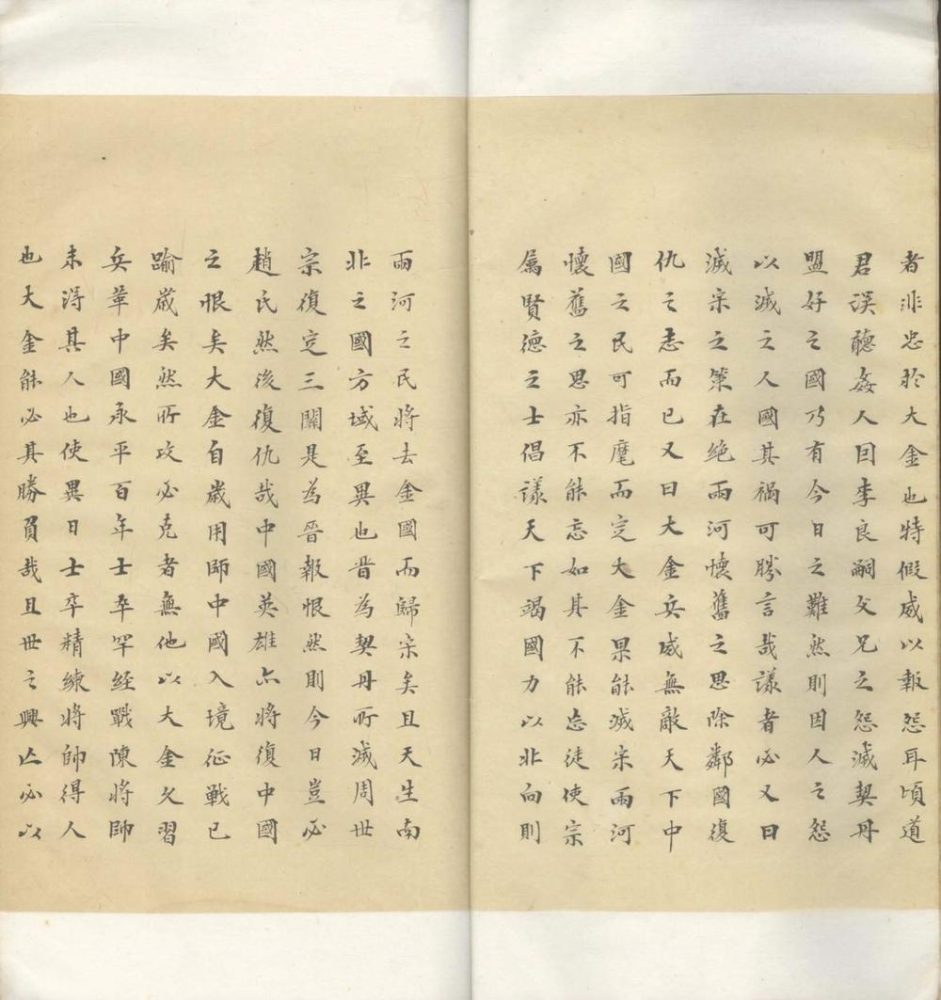 者非忠於大金也特假威以報怨耳頃道
君誤聽姦人回李良嗣父兄之怨滅契丹
盟好之國乃有今日之難然則因人之怨
以滅之人國其禍可勝言哉議者必又曰
滅宋之策在絶兩河懷舊之思除鄰國復
仇之志而已又曰大金兵威無敵天下中
國之民可指麾而定大金果能滅宋兩河
懷舊之思亦不能忘如其不能忘徒使宗
屬賢德之士倡議天下竭國力以北向則
兩河之民將去金國而歸宋矣且天生南
北之國方域至異也晋為契丹所滅周世
宗復定三關是為晋報恨然則今日豈必
趙氏然後復仇哉中國英雄亦將復中國
之恨矣大金自歲用師中國入境征戰已
踰歲矣然所攻必克者無他以大金久習
兵革中國承平百年士卒罕經戰陳將帥
未得其人也使異日士卒精練將帥得人
也大金能必其勝負哉且世之興亡必以